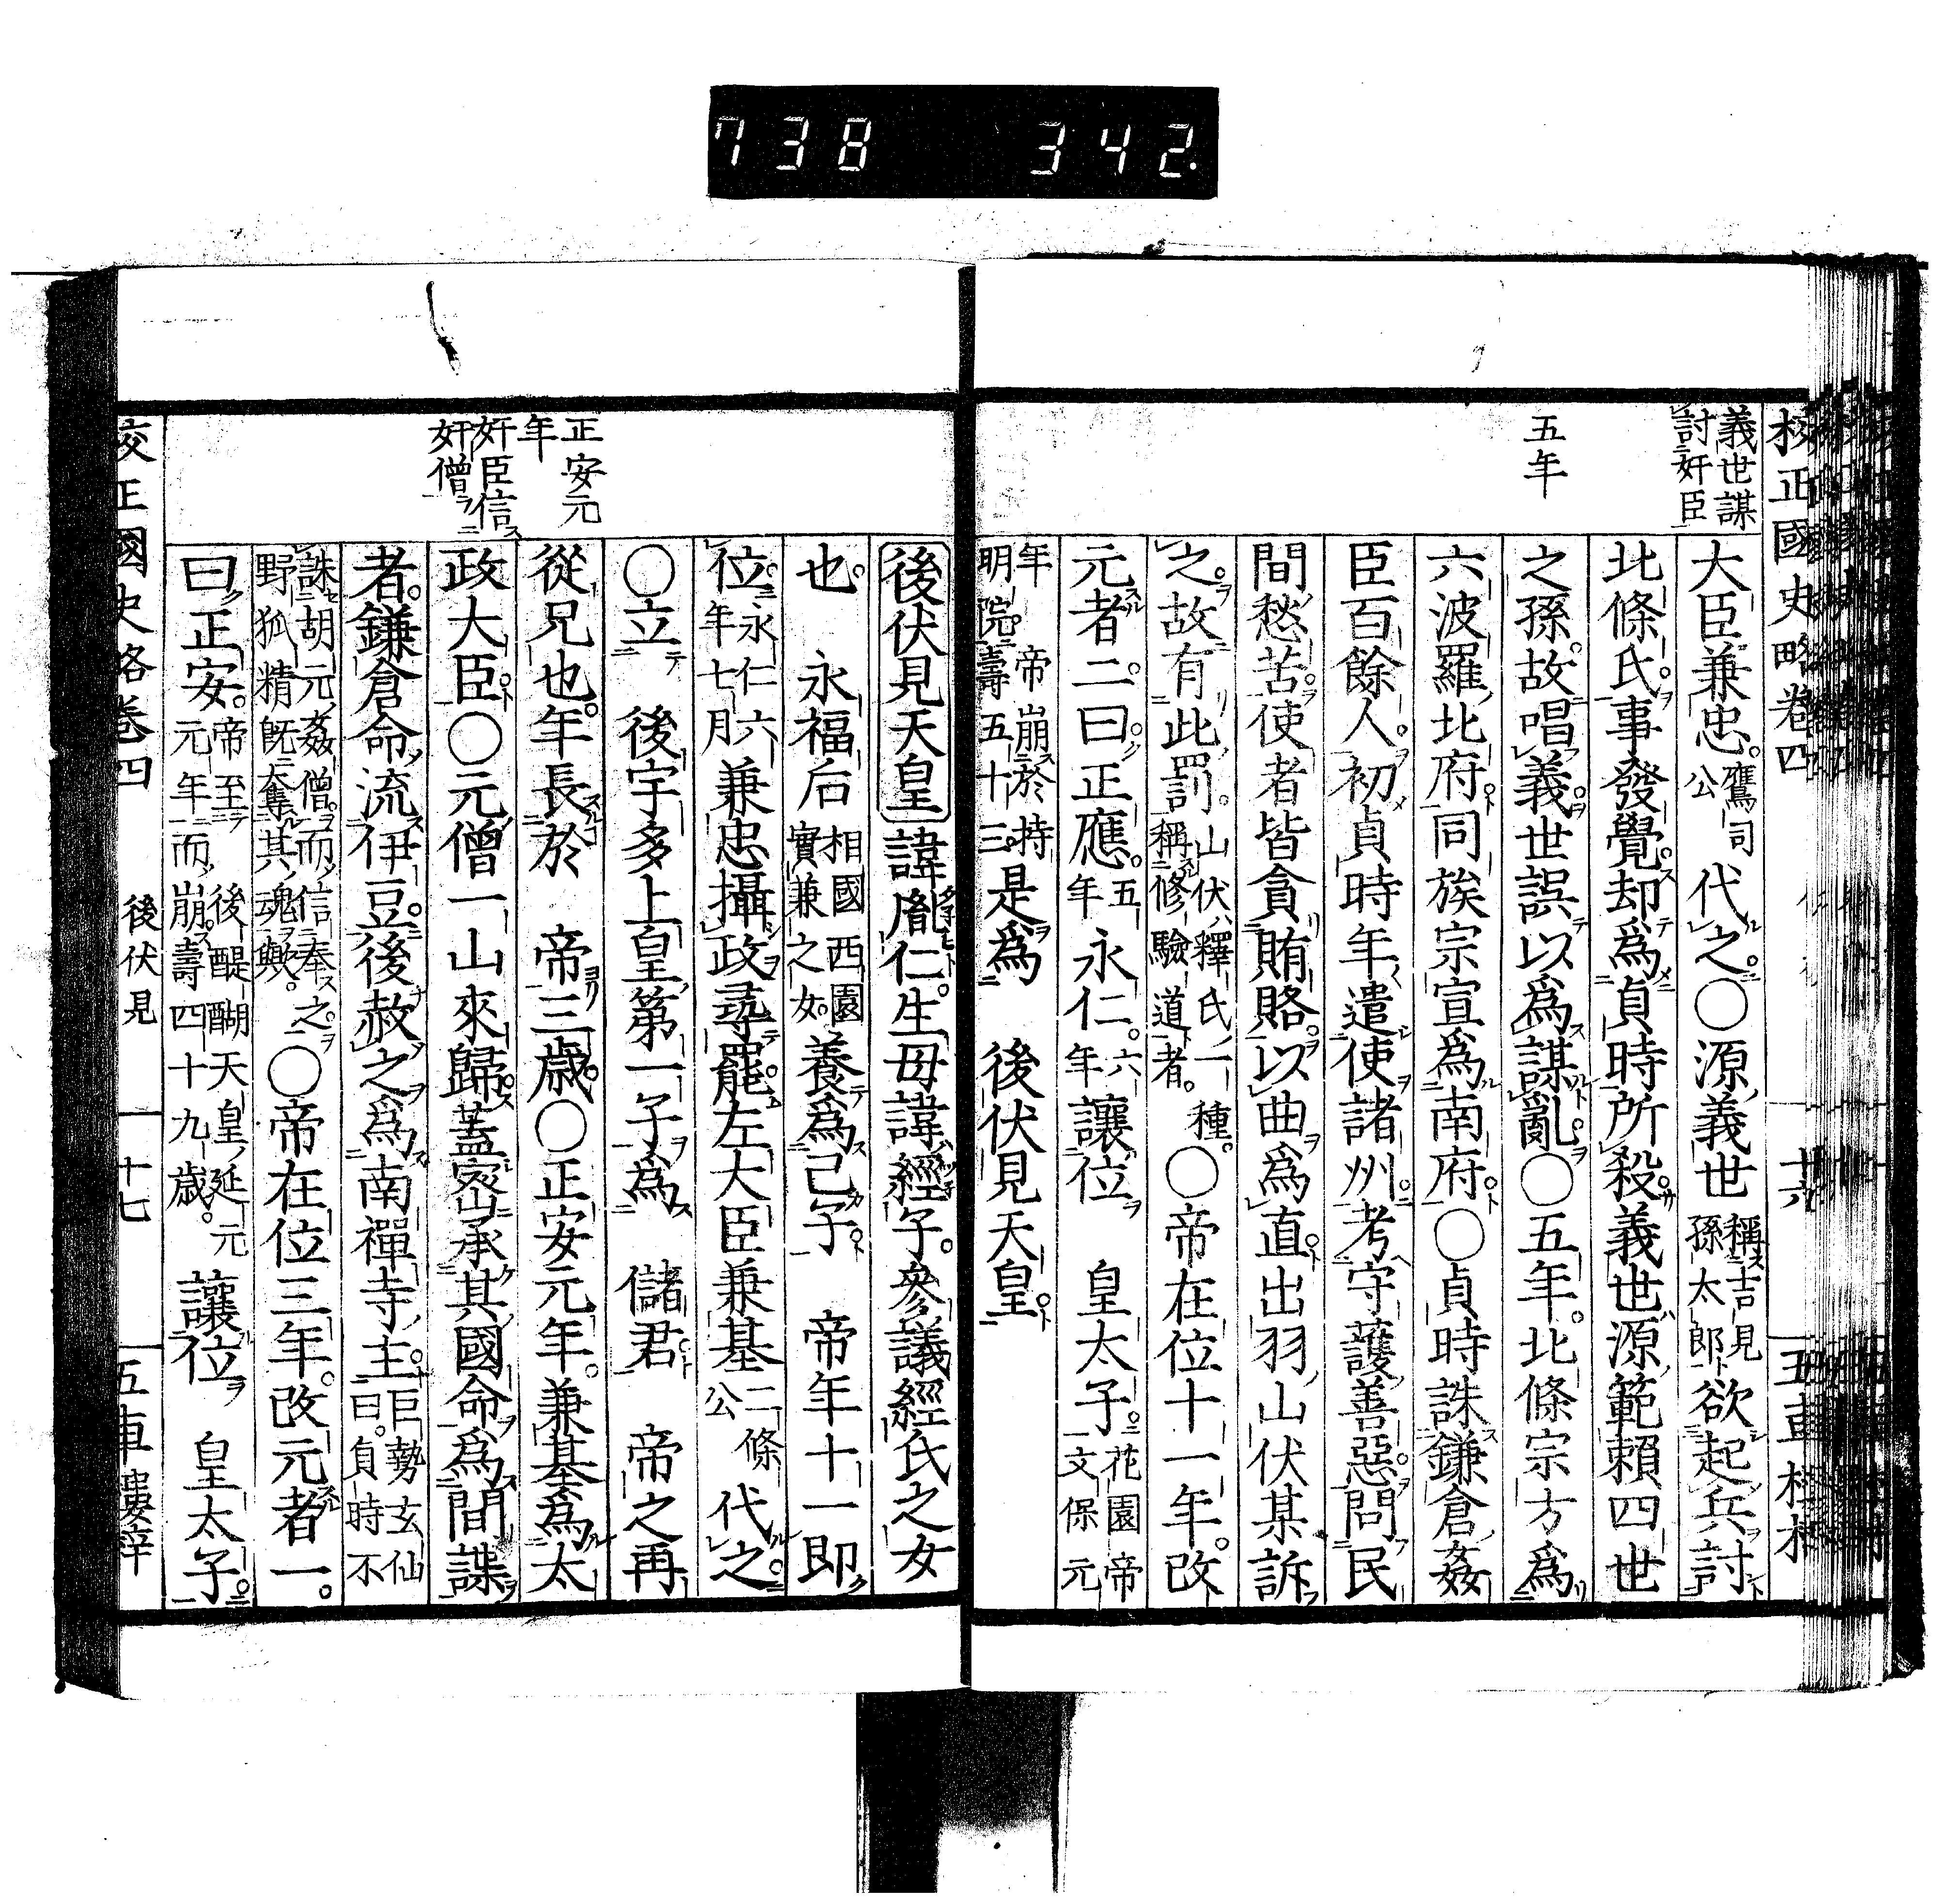 738 342.
校正國史略卷四
義世謀
討奸臣
五年
大臣兼忠。鷹司公代之。〇源義世稱吉見孫太郎欲起兵討
北條氏。事發覺。却爲貞時所殺。義世源範賴四世
之孫。故唱義。世誤以爲謀亂。〇五年。北條宗方爲
六波羅北府。同族宗宣爲南府。〇貞時誅鎌倉姦
臣百餘人。初貞時年遣使諸州。考守護善惡。問民
間愁苦。使者皆貪賄賂。以曲爲直。出羽山伏某訴
之。故有此罰。山伏釋氏一種。稱修驗道者。〇帝在位十一年。改
元者二。曰正應。五年永仁。六年讓位皇太子。花園帝文保元
年帝崩於持明院。壽五十三。是爲後伏見天皇。
後伏見天皇諱胤仁。生母諱經子。參議經氏之女
也。永福后相國西園實兼之女。養爲己子。帝年十一即
位。永仁六年七月兼忠攝政。尋罷。左大臣兼基二條公代之。
〇立後宇多上皇第一子爲儲君。帝之再
從兄也。年長於帝三歲。〇正安元年。兼基爲太
政大臣。〇元僧一山來歸。蓋密承其國命。爲間諜
者。鎌倉命流伊豆。後赦之爲南禪寺主。巨勢玄仙曰。貞時不
誅胡元姦僧。而信奉之。野狐精旣奪其魂歟。〇帝在位三年。改元者一。
曰正安。帝至後醍醐天皇延元元年而崩。壽四十九歲。讓位皇太子。
正安元
年
奸臣信
奸僧
校正國史略卷四
後伏見
十七
五車樓梓